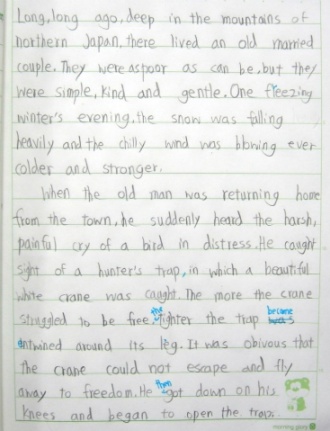 Long, long ago, deep in the mountains of
northern Japan, there lived an old married
couple. They were as poor as can be, but they
were simple, kind and gentle. One freezing
winter's evening, the snow was falling
heavily and the chilly wind was blowing ever
colder and stronger.
When the old man was returning home
from the town, he suddenly heard the harsh,
painful cry of a bird in distress. He caught
sight of a hunter's trap, in which a beautiful
white crane was caught. The more the crane
struggled to be free the tighter the trap became
entwined around its leg. It was obivous that
the crane could not escape and fly
away to freedom. He then got down on his
knees and began to open the trap.
morning glory